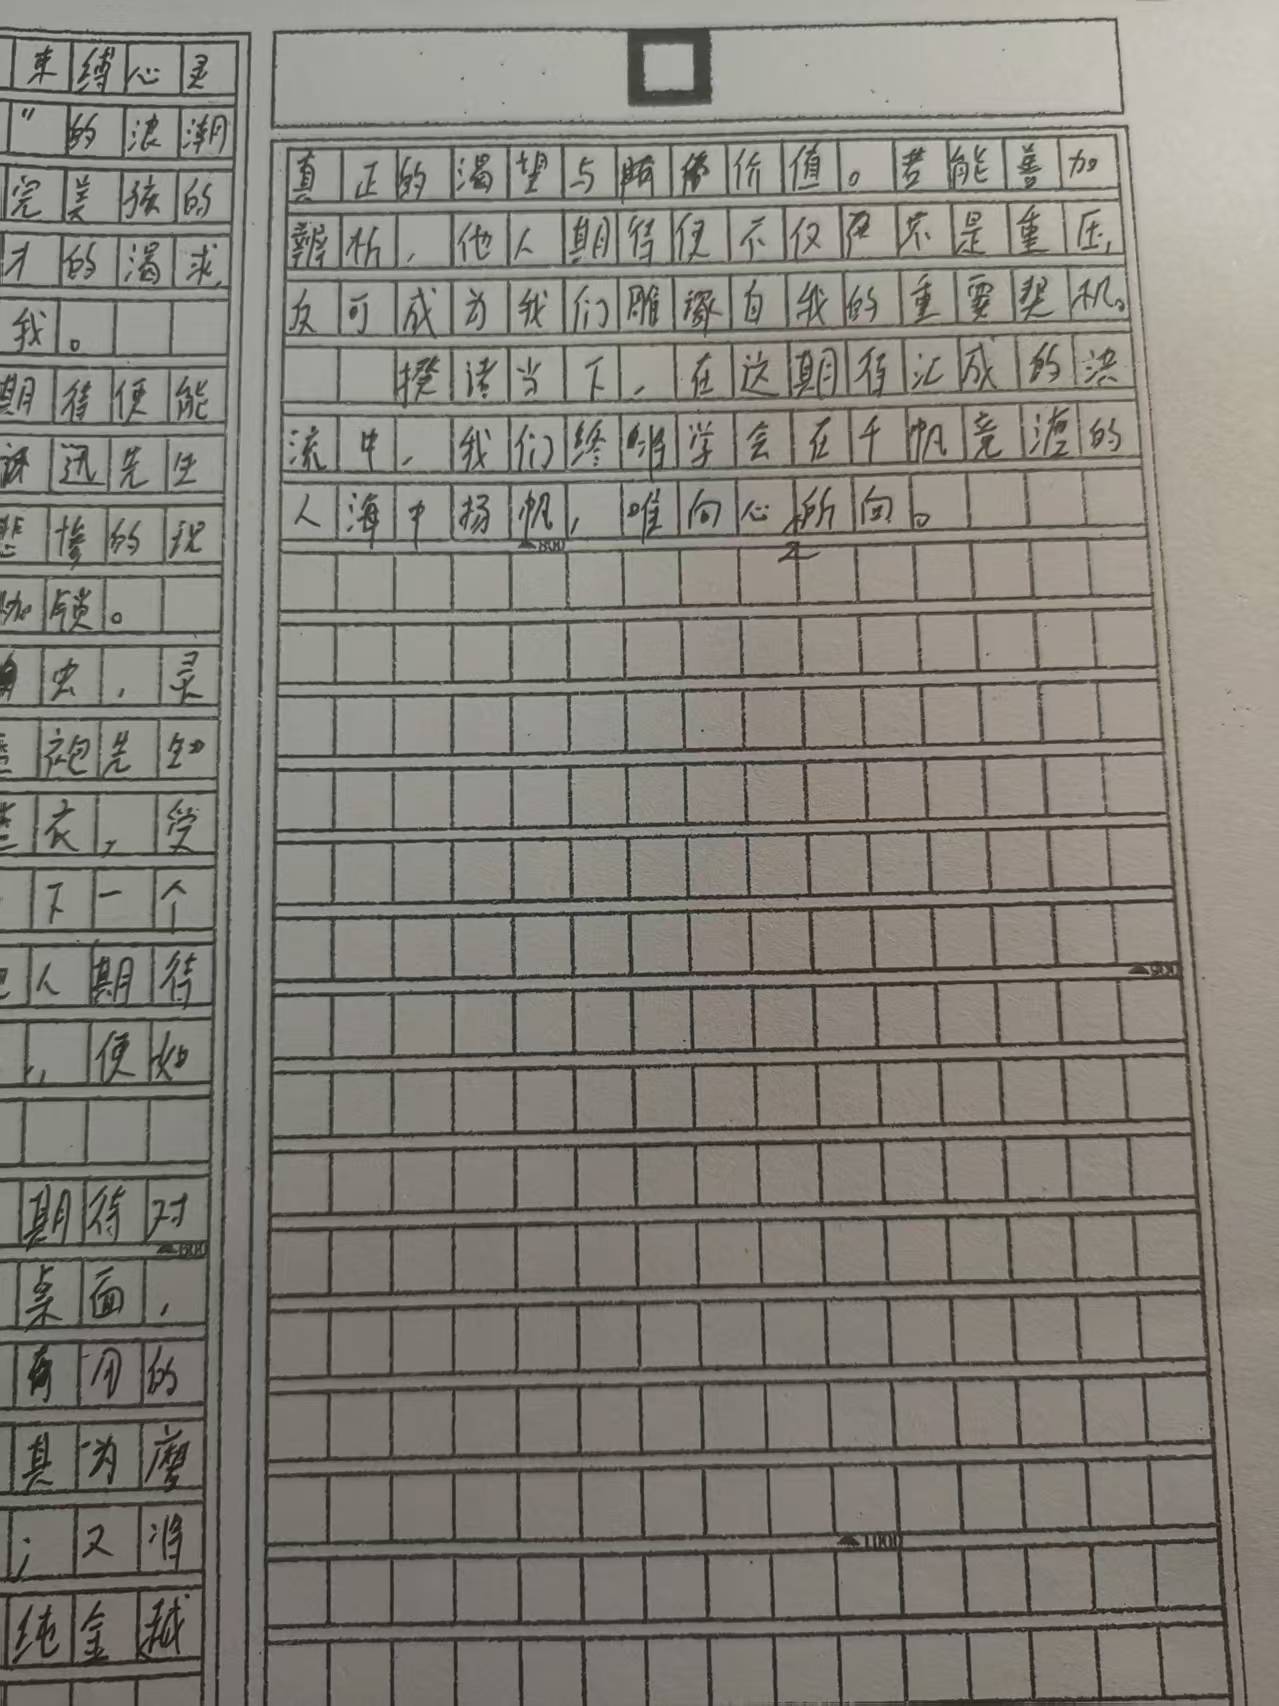 束缚心灵
”的浪潮
完美孩的
才的渴求,
我。
期待便能
迅先生
惨的现
枷锁。
虫,灵
袍先如
衣,受
下一个
人期待
,便如
期待对
▲600
桌面,
有用的
其为磨
;又将
纯金越
真正的渴望与价值。若能善加
辨析,他人期待便不仅不是重压,
反可成为我们雕琢自我的重要契机。
揆诸当下,在这期待汇成的洪
流中,我们终将学会在千帆竞渡的
人海中扬帆,唯向心之所向。
▲800
▲900
▲1000